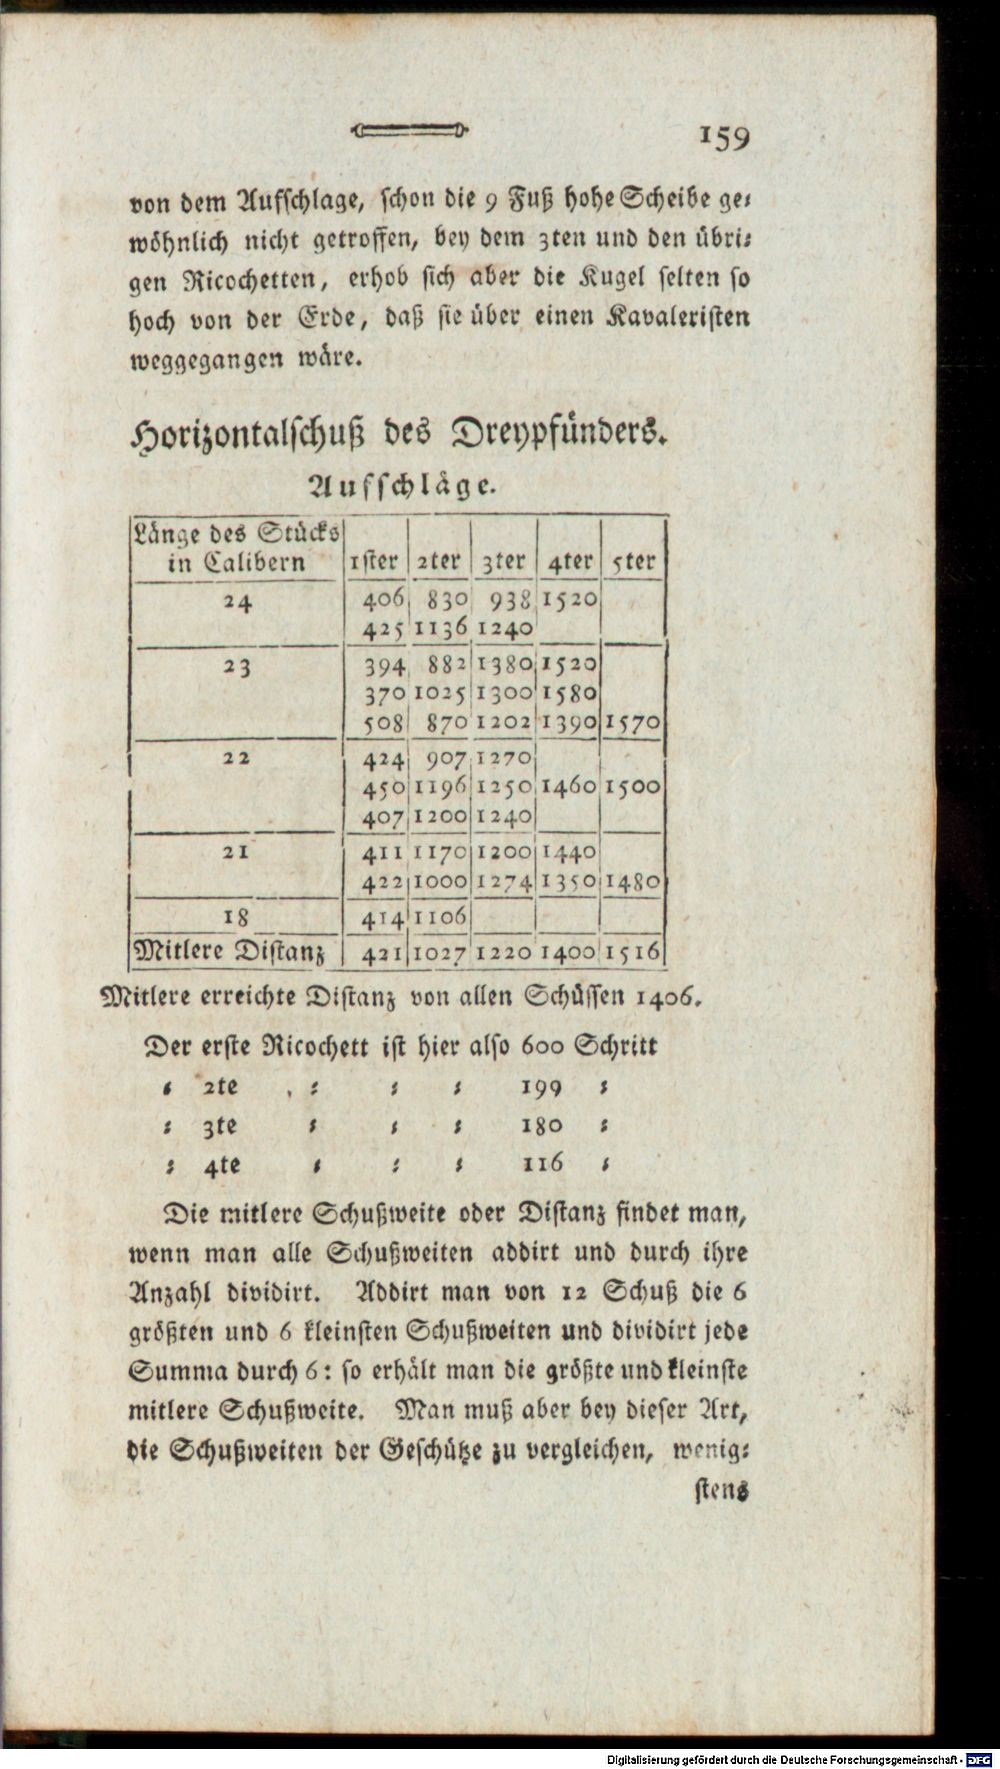 159
von dem Aufschlage, schon die 9 Fuß hohe Scheibe ge⸗
wöhnlich nicht getroffen, bey dem 3ten und den übri⸗
gen Ricochetten, erhob sich aber die Kugel selten so
hoch von der Erde, daß sie über einen Kavaleristen
weggegangen wäre.
Horizontalschuß des Dreypfünders.
Aufschläge.
Länge des Stücks
in Calibern 1ster 2ter 3ter 4ter 5ter
24 406 830 938 1520
425 1136 1240
23 394 882 1380 1520
370 1025 1300 1580
508 870 1202 1390 1570
22 424 907 1270
450 1196 1250 1460 1500
407 1200 1240
21 411 1170 1200 1440
422 1000 1274 1350 1480
18 414 1106
Mitlere Distanz 421 1027 1220 1400 1516
Mitlere erreichte Distanz von allen Schüssen 1406.
Der erste Ricochett ist hier also 600 Schritt
⸗ 2te ⸗ ⸗ ⸗ 199 ⸗
⸗ 3te ⸗ ⸗ ⸗ 180 ⸗
⸗ 4te ⸗ ⸗ ⸗ 116 ⸗
Die mitlere Schußweite oder Distanz findet man,
wenn man alle Schußweiten addirt und durch ihre
Anzahl dividirt. Addirt man von 12 Schuß die 6
größten und 6 kleinsten Schußweiten und dividirt jede
Summa durch 6: so erhält man die größte und kleinste
mitlere Schußweite. Man muß aber bey dieser Art,
die Schußweiten der Geschütze zu vergleichen, wenig⸗
stens
Digitalisierung gefördert durch die Deutsche Forschungsgemeinschaft - DFG